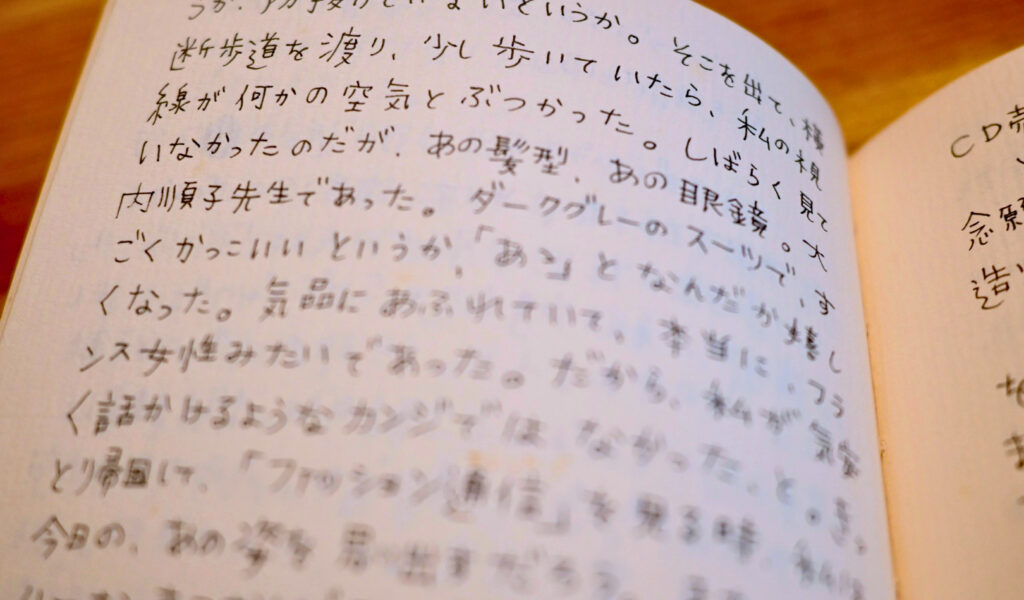 うか。そこを出て、横
断歩道を渡り、少し歩いていたら、私の視
線が何かの空気とぶつかった。しばらく見て
いなかったのだが、あの髪型、あの眼鏡。大
内順子先生であった。ダークグレーのスーツで、す
ごくかっこいいというか、「あこ」となんだか嬉し
くなった。気品にあふれていて、本当に、フラ
ンス女性みたいであった。だから、私が気安
く話かけるようなカンジではなかった、と。きっ
とり帰国して、「ファッション通信」を見る時、私は
今日の、あの姿を思い出すだろう。
CD売
念願
造